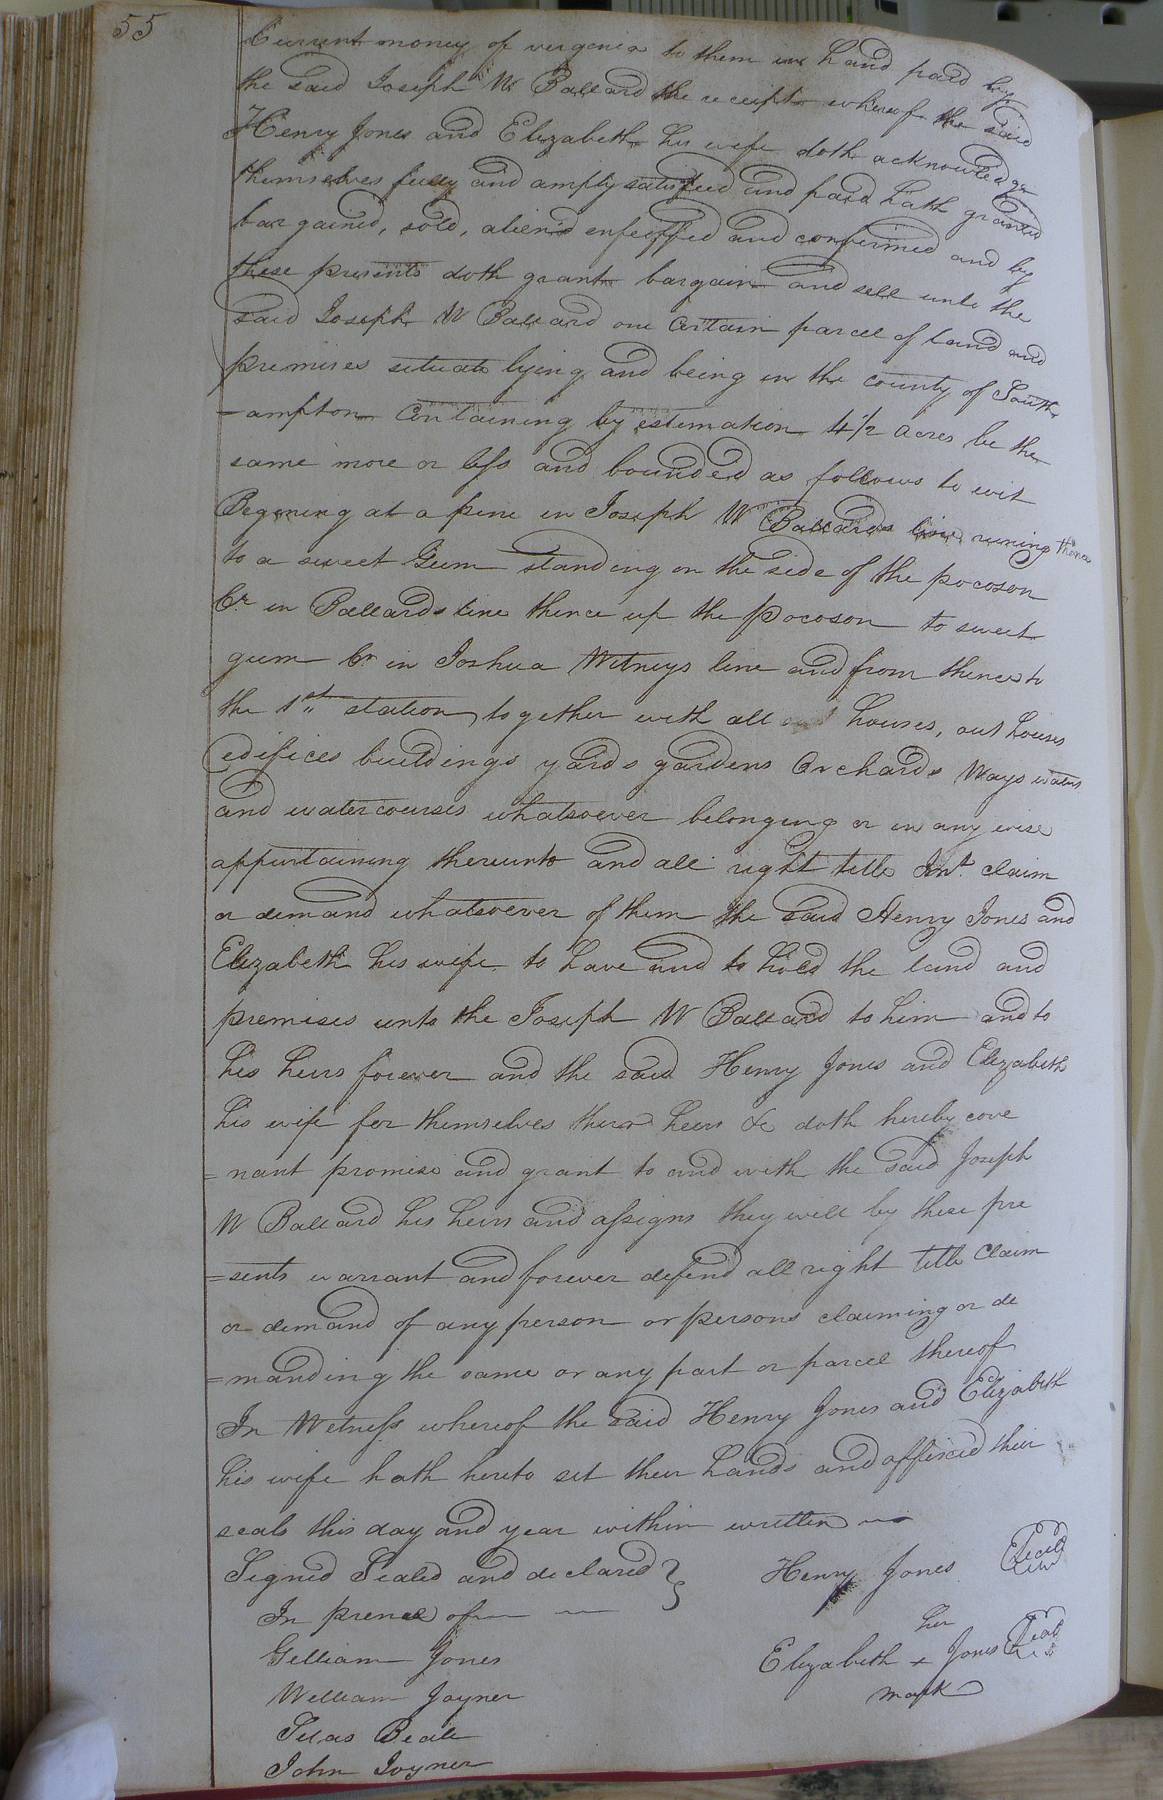 55
Current money of verginia to them in hand paid by
the said Joseph W Ballard the receipt whereof the said
Henry Jones and Elizabeth his wife doth acknowledge
themselves fully and amply satisfied and paid hath granted
bargained, sold, aliend enfeoffed and confirmed and by
these presents doth grant bargain and sell unto the
said Joseph W Ballard one Certain parcel of land and
premises situate lying and being in the county of South
-ampton Containing by estimation 4 1/2 acres be the
same more or less and bounded as follows to wit
Begening at a pine in Joseph W Ballards line runing thence
to a sweet Gum standing on the side of the pocoson
Cr in Ballards line thence up the Pocoson to sweet
gum Cr in Joshua Witneys line and from thence to
the 1st station, together with all houses, out houses
edifices buildings yards gardens Orchards Ways waters
and watercourses whatsoever belonging or in any wise
appurtaining thereunto and all right title Int. claim
or demand whatsoever of them the said Henry Jones and
Elizabeth his wife to have and to hold the land and
premises unto the Joseph W Ballard to him and to
his heirs forever and the said Henry Jones and Elizabeth
his wife for themselves their heirs &c doth hereby cove
=nant promise and grant to and with the said Joseph
W Ballard his heirs and assigns they will by these pre
=sents warrant and forever defend all right title Claim
or demand of any person or persons claiming or de
=manding the same or any part or parcel thereof
In Witness whereof the said Henry Jones and Elizabeth
his wife hath hereto set their hands and affixed their
seals this day and year within written
Signed Sealed and declared } Henry Jones Seal
In prence of
her
Gilliam Jones Elizabeth + Jones Seal
mark
William Joyner
Silas Beale
John Joyner